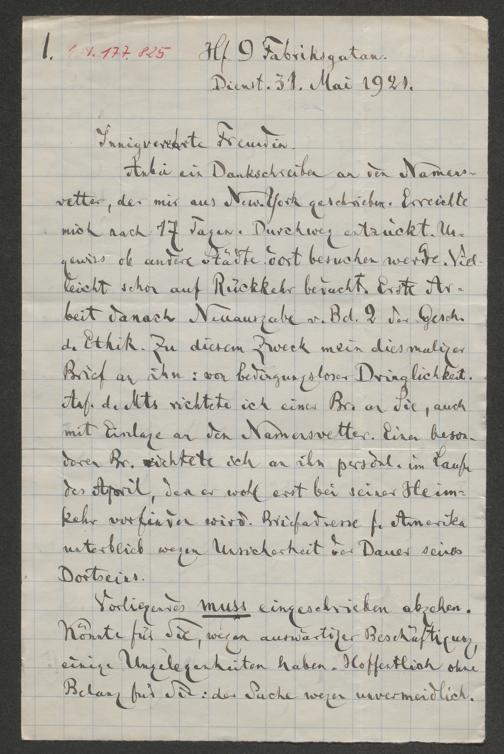 1. I.N. 177.825 Hf. 9 Fabriksgatan.
Dienst. 31. Mai 1921.
Innigverehrte Freundin.
Anbei ein Dankschreiben an den Namens-
vetter, der mir aus New-York geschrieben. Erreichte
mich nach 17 Tagen. Durchweg entzückt. Un-
gewiss ob andere Städte dort besuchen werde. Viel-
leicht schon auf Rückkehr bedacht. Erste Ar-
beit danach Neuausgabe v. Bd. 2 der Gesch.
d. Ethik. Zu diesem Zweck mein diesmaliger
Brief an ihn: von bedingungsloser Dringlichkeit.
Anf. d. Mts richtete ich einen Br. an Sie, auch
mit Einlage an den Namensvetter. Einen beson-
deren Br. richtete ich an ihn persönl. im Laufe
des April, den er wohl erst bei seiner Heim-
kehr vorfinden wird. Briefadresse f. Amerika
unterblieb wegen Unsicherheit der Dauer seines
Dortseins.
Vorliegendes muss eingeschrieben abgehen.
Könnte für Sie, wegen auswärtiger Beschäftigung,
einige Ungelegenheiten haben. Hoffentlich ohne
Belang für Sie: der Sache wegen unvermeidlich.